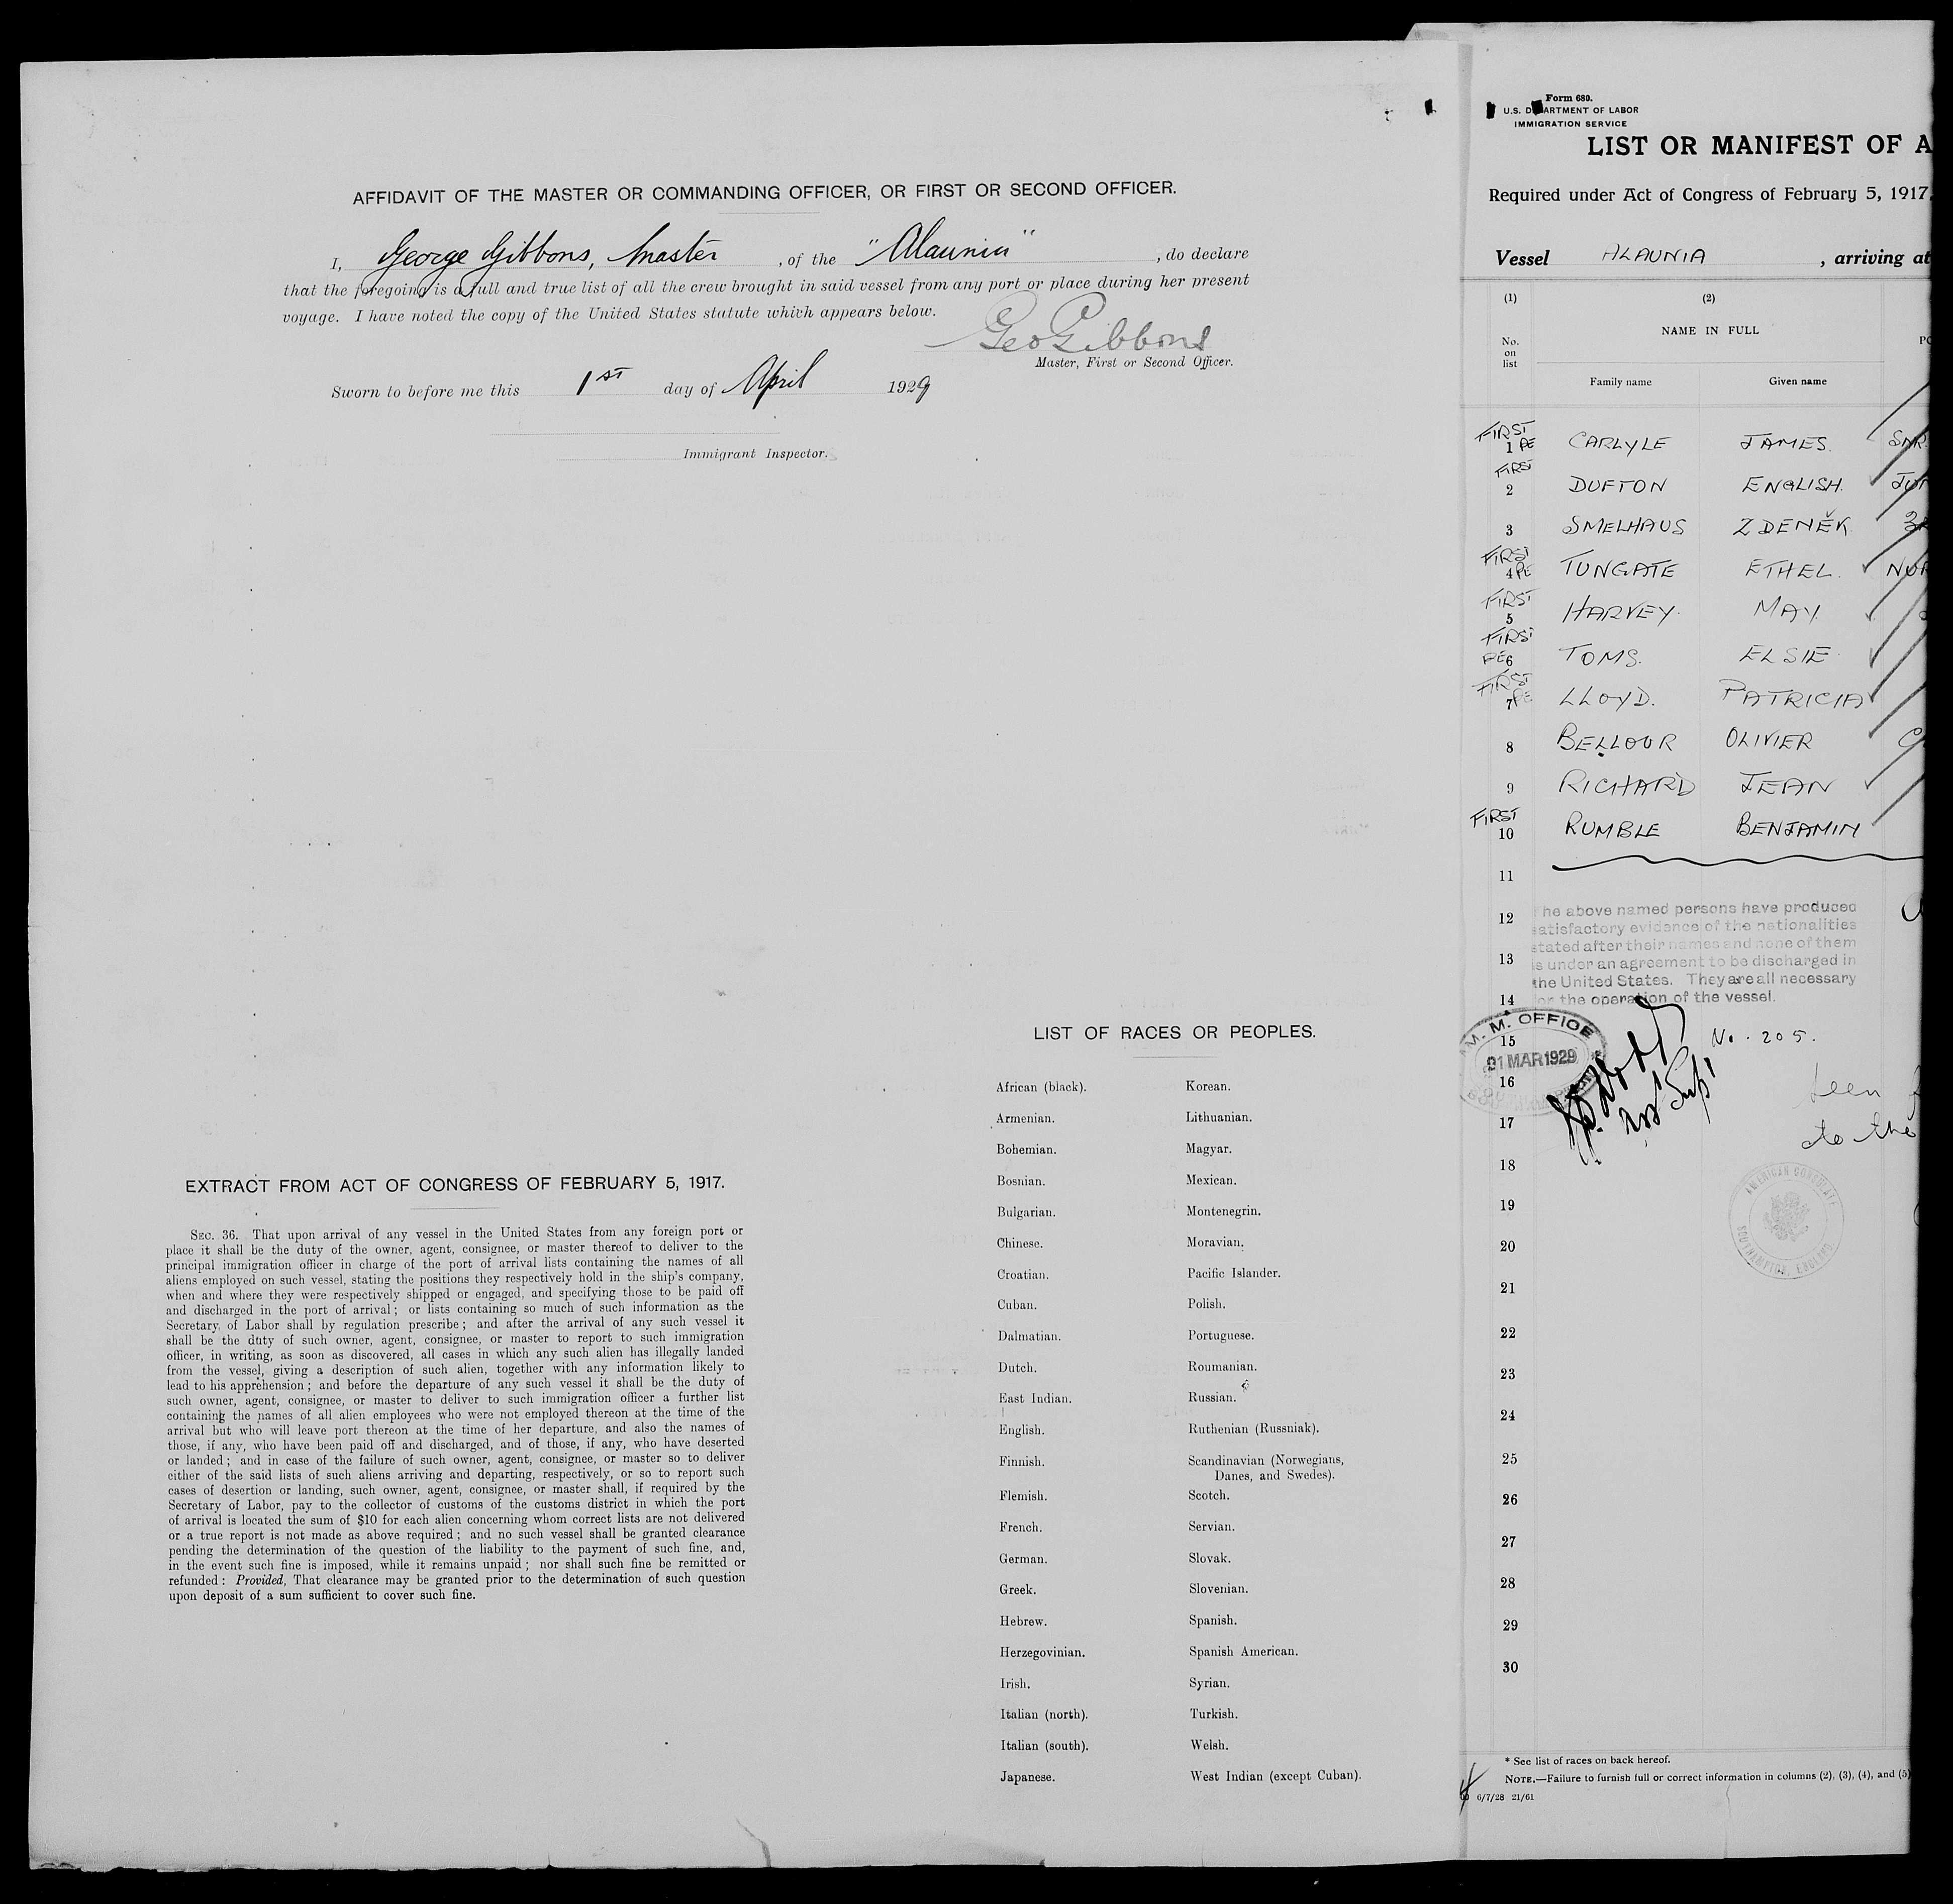 AFFIDAVIT OF THE MASTER OR COMMANDING OFFICER, OR FIRST OR SECOND OFFICER.
I, George Gibbons, Master , of the "Alaunia" , do declare
that the foregoing is a full and true list of all the crew brought in said vessel from any port or place during her present
voyage. I have noted the copy of the United States statute which appears below.
Geo Gibbons
Master, First or Second Officer.
Sworn to before me this 1st day of April 1929
Immigrant Inspector.
LIST OF RACES OR PEOPLES.
African (black). Korean.
Armenian. Lithuanian.
Bohemian. Magyar.
Bosnian. Mexican.
Bulgarian. Montenegrin.
Chinese. Moravian.
Croatian. Pacific Islander.
Cuban. Polish.
Dalmatian. Portuguese.
Dutch. Roumanian.
East Indian. Russian.
English. Ruthenian (Russniak).
Finnish. Scandinavian (Norwegians,
Danes, and Swedes).
Flemish. Scotch.
French. Servian.
German. Slovak.
Greek. Slovenian.
Hebrew. Spanish.
Herzegovinian. Spanish American.
Irish. Syrian.
Italian (north). Turkish.
Italian (south). Welsh.
Japanese. West Indian (except Cuban).
EXTRACT FROM ACT OF CONGRESS OF FEBRUARY 5, 1917.
SEC. 36. That upon arrival of any vessel in the United States from any foreign port or
place it shall be the duty of the owner, agent, consignee, or master thereof to deliver to the
principal immigration officer in charge of the port of arrival lists containing the names of all
aliens employed on such vessel, stating the positions they respectively hold in the ship's company,
when and where they were respectively shipped or engaged, and specifying those to be paid off
and discharged in the port of arrival; or lists containing so much of such information as the
Secretary of Labor shall by regulation prescribe; and after the arrival of any such vessel it
shall be the duty of such owner, agent, consignee, or master to report to such immigration
officer, in writing, as soon as discovered, all cases in which any such alien has illegally landed
from the vessel, giving a description of such alien, together with any information likely to
lead to his apprehension; and before the departure of any such vessel it shall be the duty of
such owner, agent, consignee, or master to deliver to such immigration officer a further list
containing the names of all alien employees who were not employed thereon at the time of the
arrival but who will leave port thereon at the time of her departure, and also the names of
those, if any, who have been paid off and discharged, and of those, if any, who have deserted
or landed; and in case of the failure of such owner, agent, consignee, or master so to deliver
either of the said lists of such aliens arriving and departing, respectively, or so to report such
cases of desertion or landing, such owner, agent, consignee, or master shall, if required by the
Secretary of Labor, pay to the collector of customs of the customs district in which the port
of arrival is located the sum of $10 for each alien concerning whom correct lists are not delivered
or a true report is not made as above required; and no such vessel shall be granted clearance
pending the determination of the question of the liability to the payment of such fine, and,
in the event such fine is imposed, while it remains unpaid; nor shall such fine be remitted or
refunded: Provided, That clearance may be granted prior to the determination of such question
upon deposit of a sum sufficient to cover such fine.
Form 680.
U.S. DEPARTMENT OF LABOR
IMMIGRATION SERVICE
LIST OR MANIFEST OF A
Required under Act of Congress of February 5, 1917,
Vessel ALAUNIA , arriving at
(1) (2)
NAME IN FULL
No.
on
list
Family name Given name
FIRST
1 PE CARLYLE JAMES. SNR
FIRST
2 DUFTON ENGLISH. JUN
3 SMELHAUS ZDENĚK
FIRST
4 PE TUNGATE ETHEL. NUR
FIRST
5 HARVEY. MAY
FIRST
PE 6 TOMS. ELSIE
FIRST
7 PE LLOYD. PATRICIA
8 BELLOUR OLIVIER
9 RICHARD JEAN
FIRST
10 RUMBLE BENJAMIN
11
12
13
14
15
16
17
18
19
20
21
22
23
24
25
26
27
28
29
30
The above named persons have produced
satisfactory evidence of the nationalities
stated after their names and none of them
is under an agreement to be discharged in
the United States. They are all necessary
for the operation of the vessel.
M. M. OFFICE
MAR 1929
No. 205.
seen
to the
AMERICAN CONSULATE
SOUTHAMPTON, ENGLAND
* See list of races on back hereof.
NOTE.—Failure to furnish full or correct information in columns (2), (3), (4), and (5)
6/7/28 21/61